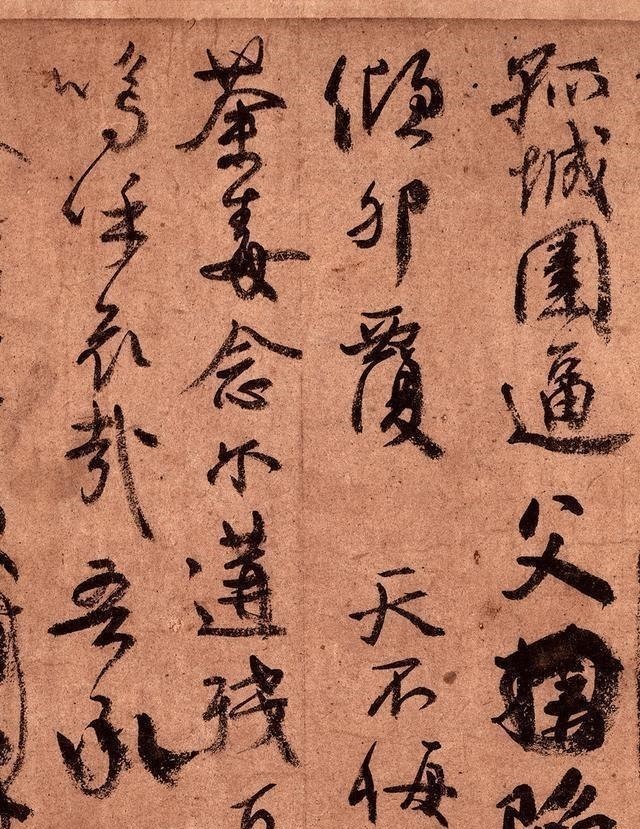 孤城圍逼父陷
傾卵覆天不悔
荼毒念尔遘殘
嗚呼哀哉吾承